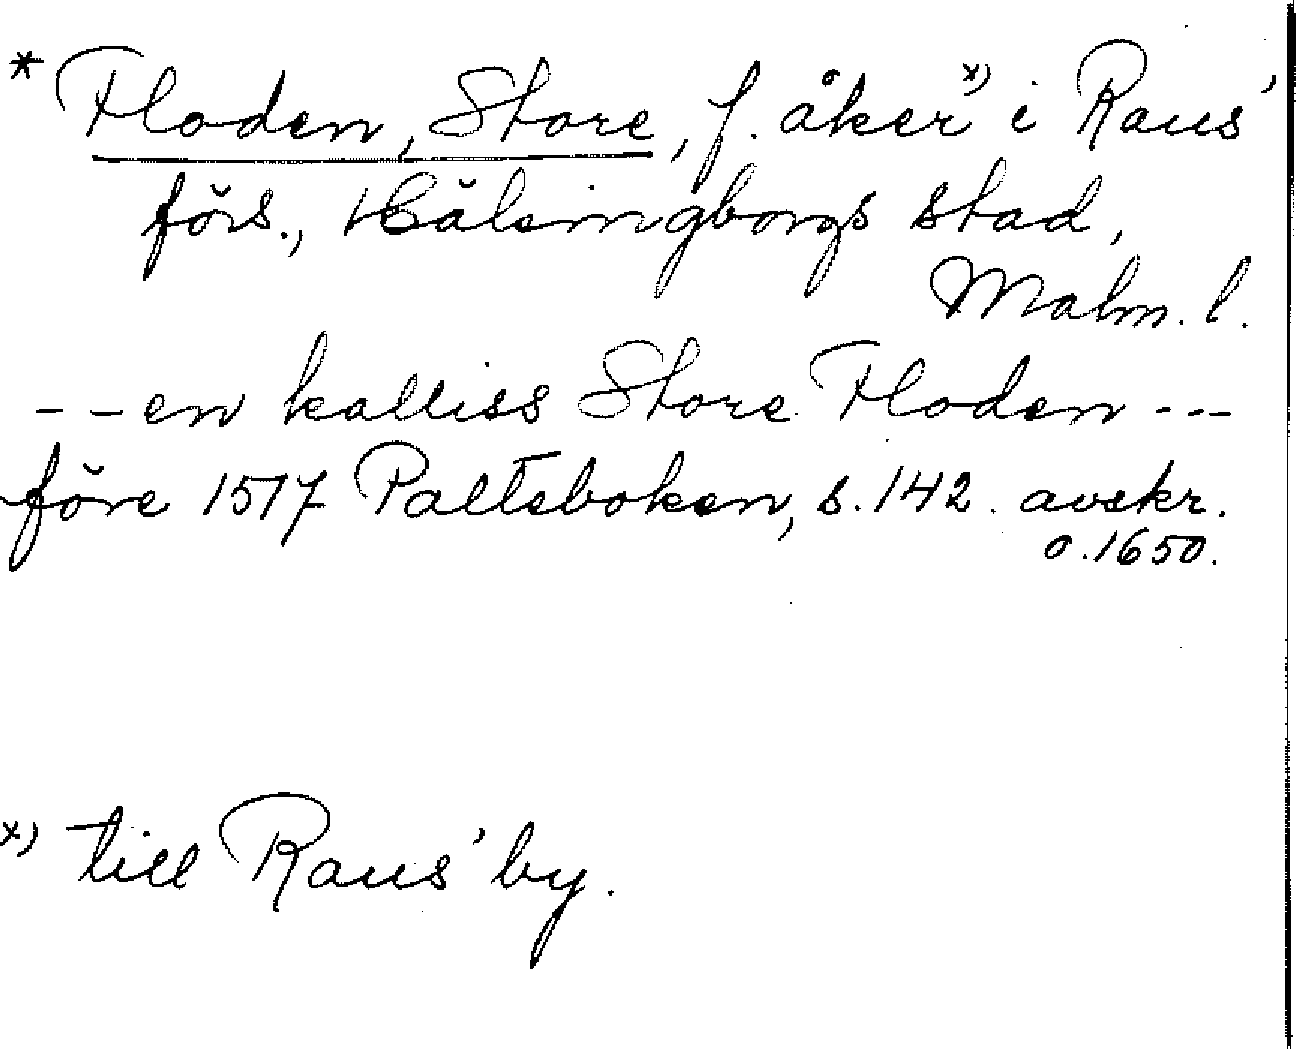 * Floden, Store, f. åker x) i Raus'
förs., Hälsingborgs stad,
Malm. l.
- - en kalliss Store Floden - - -
före 1517 Paltsboken, s. 142. avskr.
o. 1650.
x) till Raus' by.